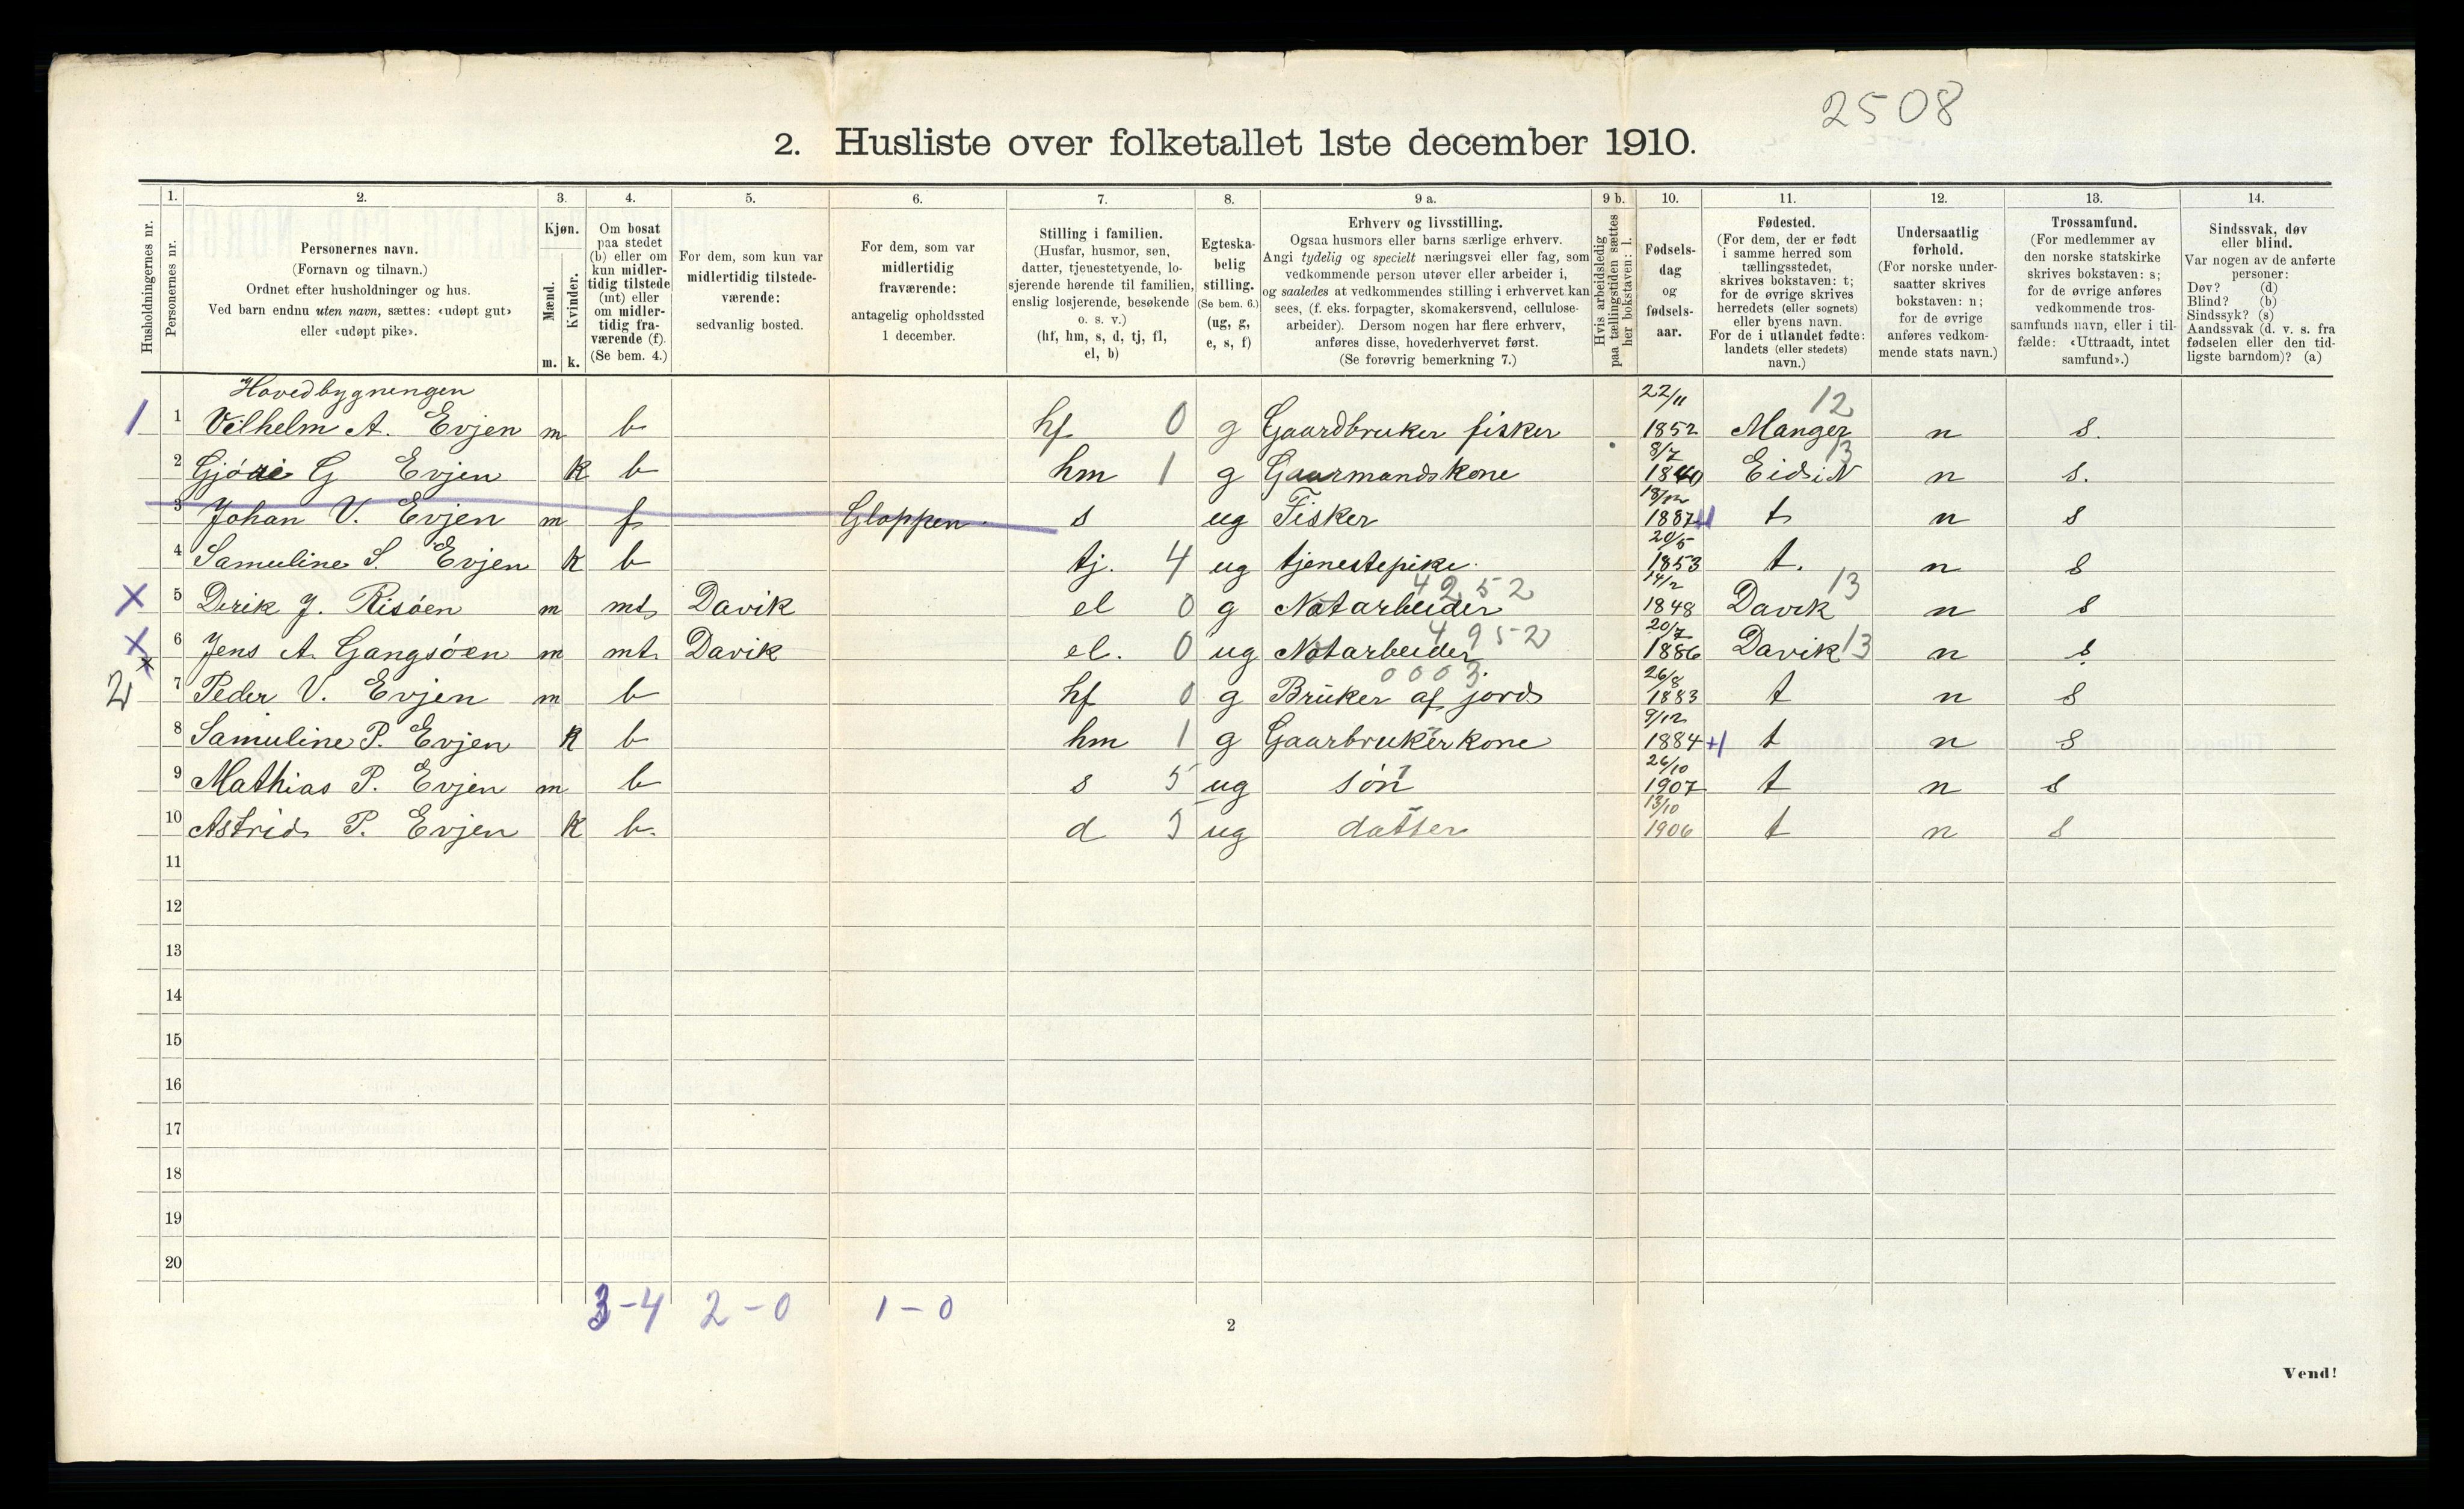 2508
2. Husliste over folketallet 1ste december 1910.
Husholdningernes nr.
1.
Personernes nr.
2.
Personernes navn.
(Fornavn og tilnavn.)
Ordnet efter husholdninger og hus.
Ved barn endnu uten navn, sættes: «udøpt gut»
eller «udøpt pike».
3.
Kjøn.
Mænd.
m.
Kvinder.
k.
4.
Om bosat
paa stedet
(b) eller om
kun midler-
tidig tilstede
(mt) eller
om midler-
tidig fra-
værende (f).
(Se bem. 4.)
5.
For dem, som kun var
midlertidig tilstede-
værende:
sedvanlig bosted.
6.
For dem, som var
midlertidig
fraværende:
antagelig opholdssted
1 december.
7.
Stilling i familien.
(Husfar, husmor, søn,
datter, tjenestetyende, lo-
sjerende hørende til familien,
enslig losjerende, besøkende
o. s. v.)
(hf, hm, s, d, tj, fl,
el, b)
8.
Egteska-
belig
stilling.
(Se bem. 6.)
(ug, g,
e, s, f)
9 a.
Erhverv og livsstilling.
Ogsaa husmors eller barns særlige erhverv.
Angi tydelig og specielt næringsvei eller fag, som
vedkommende person utøver eller arbeider i,
og saaledes at vedkommendes stilling i erhvervet kan
sees, (f. eks. forpagter, skomakersvend, cellulose-
arbeider). Dersom nogen har flere erhverv,
anføres disse, hovederhvervet først.
(Se forøvrig bemerkning 7.)
9 b.
Hvis arbeidsledig
paa tællingstiden sættes
her bokstaven: l.
10.
Fødsels-
dag
og
fødsels-
aar.
11.
Fødested.
(For dem, der er født
i samme herred som
tællingsstedet,
skrives bokstaven: t;
for de øvrige skrives
herredets (eller sognets)
eller byens navn.
For de i utlandet fødte:
landets (eller stedets)
navn.)
12.
Undersaatlig
forhold.
(For norske under-
saatter skrives
bokstaven: n;
for de øvrige
anføres vedkom-
mende stats navn.)
13.
Trossamfund.
(For medlemmer av
den norske statskirke
skrives bokstaven: s;
for de øvrige anføres
vedkommende tros-
samfunds navn, eller i til-
fælde: «Uttraadt, intet
samfund».)
14.
Sindssvak, døv
eller blind.
Var nogen av de anførte
personer:
Døv? (d)
Blind? (b)
Sindssyk? (s)
Aandssvak (d. v. s. fra
fødselen eller den tid-
ligste barndom)? (a)
Hovedbygningen
1 1 Vilhelm A. Evjen m b hf 0 g Gaardbruker fisker 22/11 1852 Manger 12 n s.
2 Gjøri G Evjen k b hm 1 g Gaarmandskone 8/7 1840 Eid i N 13 n s.
3 Johan V. Evjen m f Gloppen s ug Fisker 18/12 1887 t n s
4 Samuline S. Evjen k b tj. 4 ug tjenestepike. 20/5 1853 t. n s
X 5 Derik J. Risøen m mt Davik el 0 g Notarbeider 4252 14/2 1848 Davik 13 n s
X 6 Jens A. Gangsøen m mt Davik el. 0 ug Notarbeider 4952 20/7 1886 Davik 13 n s
2 x 7 Peder V. Evjen m b hf 0 g Bruker af jord 0003 26/8 1883 t n s
8 Samuline P. Evjen k b hm 1 g Gaarbrukerkone 9/12 1884 +1 t n s
9 Mathias P. Evjen m b s 5 ug søn 26/10 1907 t n s
10 Astrid P. Evjen k b. d 5 ug datter 13/10 1906 t n s
11
12
13
14
15
16
17
18
19
20
3-4 2-0 1-0
2
Vend!